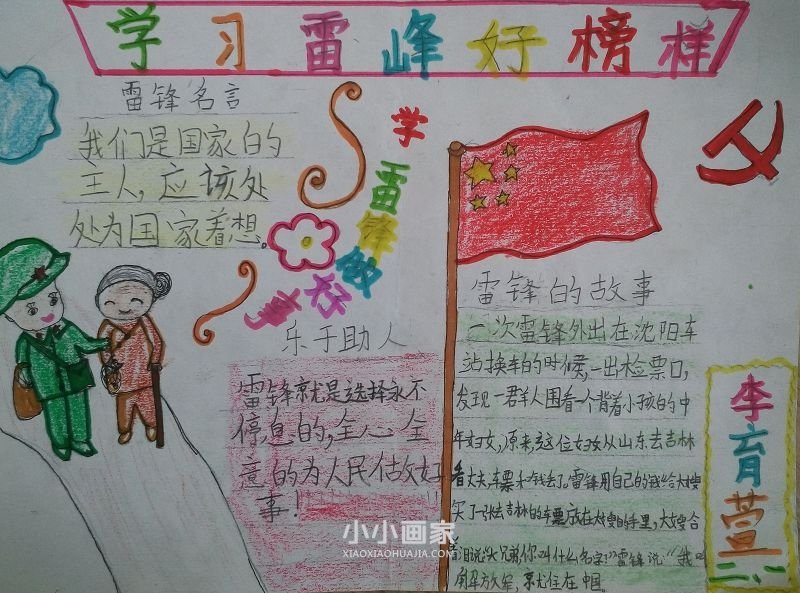 学习雷峰好榜样
雷锋名言
我们是国家的
主人，应该处
处为国家着想。
学雷锋做好事
乐于助人
雷锋就是选择永不
停息的，全心全
意的为人民估做好
事！
雷锋的故事
一次雷锋外出在沈阳车
站换车的时候，一出检票口，
发现一群人围看一个背着小孩的中
年妇女，原来这位妇女从山东去吉林
看丈夫，车票和钱丢了。雷锋用自己的钱给大嫂
买了一张去吉林的车票放在大嫂的手里，大嫂含
泪说："大兄弟你叫什么名字！"雷锋说"我叫
解放军，就住在中国。
李育萱
二、一
小小画家
XIAOXIAOHUAJIA.COM